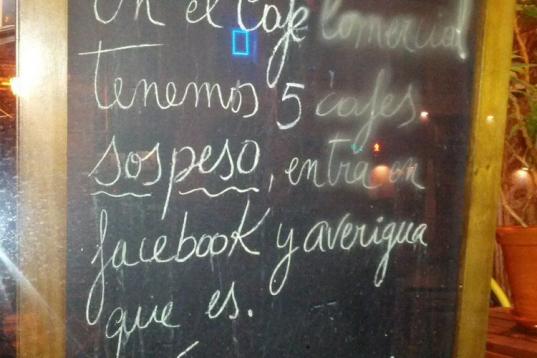 En el Café Comercial
tenemos 5 cafes
sospeso, entra en
facebook y averigua
que es.